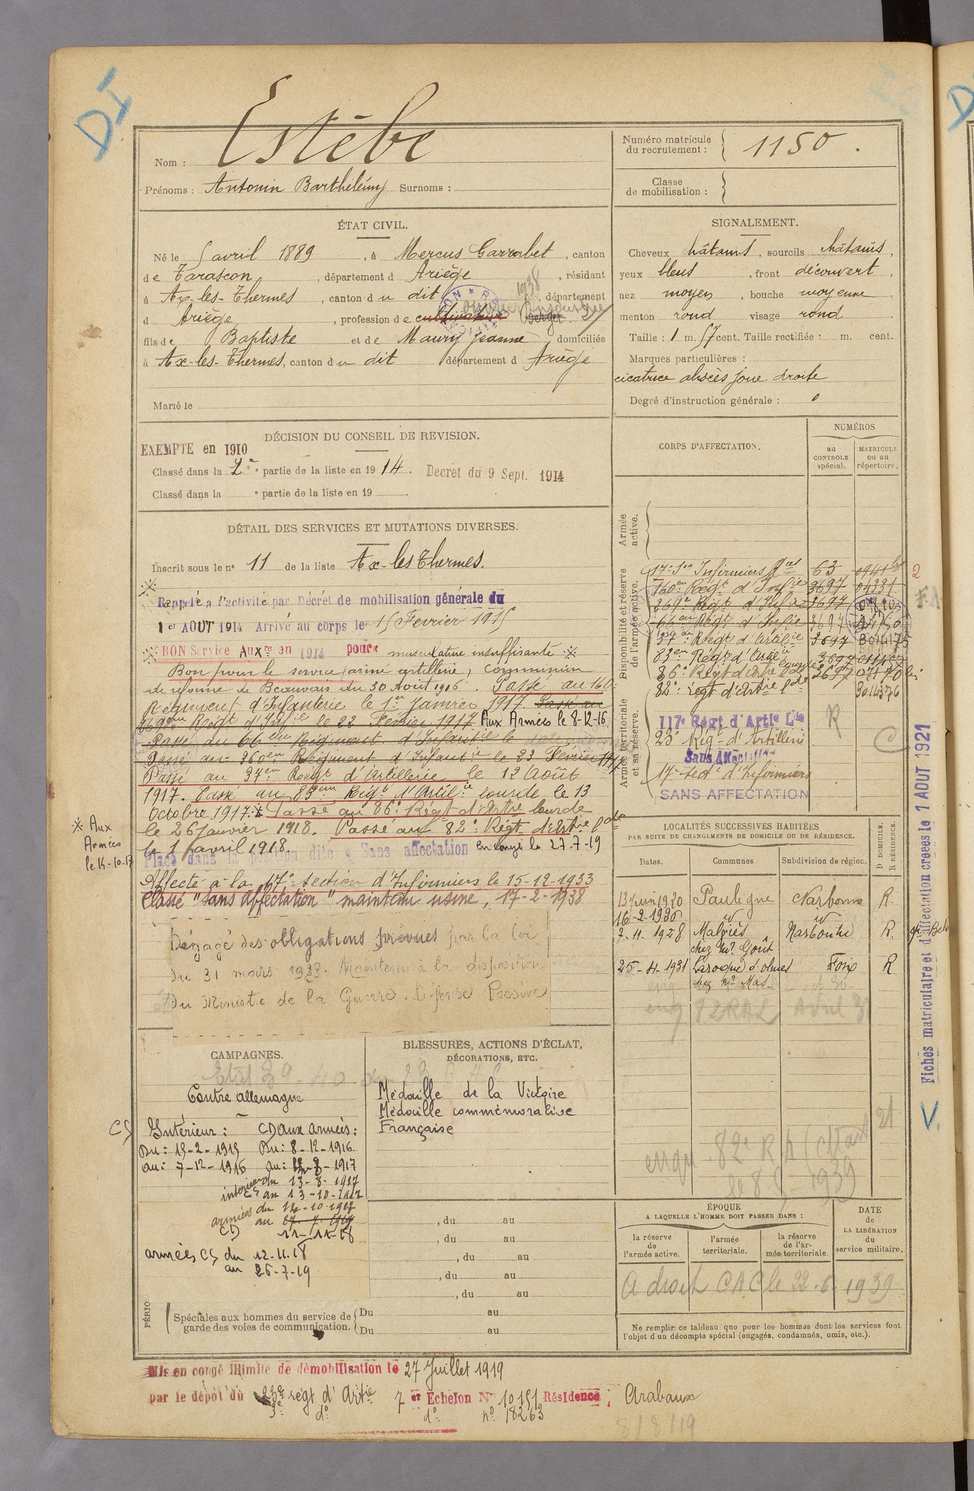 DI
Nom : Estèbe
Prénoms : Antonin Barthélémy Surnoms :
Numéro matricule du recrutement : 1150.
Classe de mobilisation :
ÉTAT CIVIL.
Né le 5 avril 1889, à Mercus Garrabet, canton
de Tarascon, département d Ariège, résidant
à Ax-les-Thermes, canton du dit, département
d Ariège, profession de cultivateur Berger
fils de Baptiste et de Maury Jeanne domiciliés
à Ax-les-Thermes, canton du dit département d Ariège
Marié le
SIGNALEMENT.
Cheveux châtains, sourcils châtains,
yeux bleus, front découvert,
nez moyen, bouche moyenne,
menton rond visage rond
Taille : 1 m. 57 cent. Taille rectifiée : m. cent.
Marques particulières :
cicatrice abscès joue droite
Degré d'instruction générale : 0
DÉCISION DU CONSEIL DE REVISION.
EXEMPTE en 1910
Classé dans la 2e partie de la liste en 1914. Décret du 9 Sept. 1914
Classé dans la partie de la liste en 19
DÉTAIL DES SERVICES ET MUTATIONS DIVERSES.
Inscrit sous le no 11 de la liste Ax-les-Thermes.
Rappelé à l'activité par Décret de mobilisation générale du
1er AOUT 1914 Arrivé au corps le 15 Février 1915
BON Service Auxre en 1914 pour musculature insuffisante
Bon pour le service armé artillerie, commission
de réforme de Beauvais du 30 Août 1916. Passé au 160
Régiment d'Infanterie le 1er janvier 1917. Passé au
369eme Régt d'Infie le 22 Février 1917 Aux Armées le 8-12-16
Passé au 66eme Régiment d'Infanterie le
Passé au 360eme Régiment d'Infanterie le 23 Février 1917
Passé au 37eme Régt d'Artillerie le 12 Août
1917. Passé au 83eme Régt d'Artilie lourde le 13
Octobre 1917. Passé au 86e Régt d'Artrie lourde
le 26 janvier 1918. Passé au 82e Régt d'Artrie lde
le 1 avril 1918. en congé le 27-7-19
Placé dans la position dite « Sans affectation
Affecté à la 17e section d'Infirmiers le 15-12-1933
Classé "sans affectation" maintenu usine, 17-2-1938
Dégagé des obligations prévues par la loi
du 31 mars 1928. Maintenu à la disposition
du Ministre de la Guerre. Défense Passive
Aux
Armées
le 14-10-17
CORPS D'AFFECTATION.
NUMÉROS
au CONTRÔLE spécial.
MATRICULE ou au répertoire.
Armée active.
Disponibilité et réserve de l'armée active.
17e Son Infirmiers 63
160eme Régt d'Infie 3697 04331
369e Régt d'Infie 3697
66eme Régt d'Infie
37e Régt d'Artilie 3697
83eme Régt d'Artie 3697
86e Régt d'Artrie 3697
82e régt d'Artrie lde
Armée territoriale et sa réserve.
117e Régt d'Artie Lde
23e Régt d'Artillerie
Sans Affectation
17e sect. d'Infirmiers
SANS AFFECTATION
R
LOCALITÉS SUCCESSIVES HABITÉES
PAR SUITE DE CHANGEMENTS DE DOMICILE OU DE RÉSIDENCE.
Dates. Communes. Subdivision de région. D DOMICILE. R RÉSIDENCE.
13 juin 1920 Pauligne Narbonne R.
16-2-1926
7-11-1928 Malviès Narbonne R.
chez Mr Goût
25-4-1931 Laroque d'olmes Foix R
chez Mr Mas
CAMPAGNES.
Contre allemagne
Intérieur : CD aux armées :
Du : 15-2-1915 Du : 8-12-1916
au : 7-12-1916 au : 12-8-1917
intérieur du 13-8-1917
CS au 13-10-1917
armées du 14-10-1917
CD au
11-11-18
armées CS du 12-11-18
au 26-7-19
BLESSURES, ACTIONS D'ÉCLAT,
DÉCORATIONS, ETC.
Médaille de la Victoire
Médaille commémorative
Française
, du au
, du au
, du au
, du au
, du au
PÉRIO
Spéciales aux hommes du service de garde des voies de communication. Du au
Du au
ÉPOQUE
A LAQUELLE L'HOMME DOIT PASSER DANS :
la réserve de l'armée active.
l'armée territoriale.
la réserve de l'armée territoriale.
DATE de LA LIBÉRATION du service militaire.
A droit C.A.C le 22-6-1939
Ne remplir ce tableau que pour les hommes dont les services font l'objet d'un décompte spécial (engagés, condamnés, omis, etc.).
Mis en congé illimité de démobilisation le 27 Juillet 1919
par le dépôt du régt d'Artie 7er Echelon No 10151 Résidence : Arabaux
do do no 18263
8/8/19
Fiches matriculaire et d'affectation créées le 1 AOUT 1921
V.